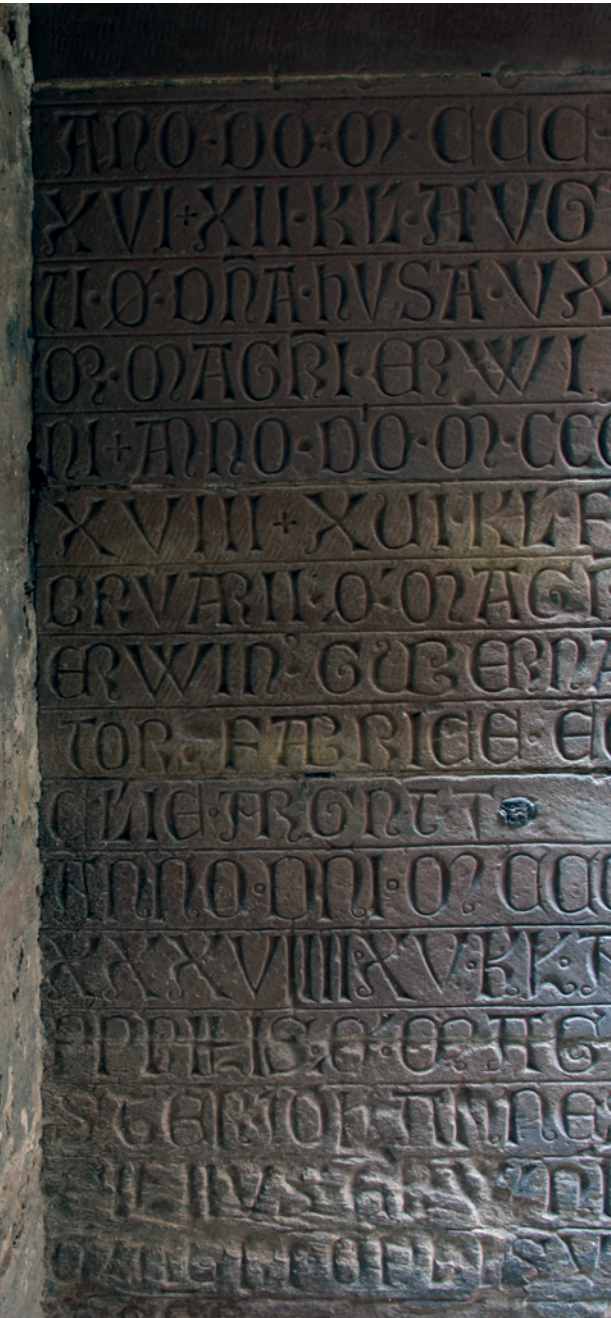 ANO·DO·M·CCC·
XVI+XII·KL'·AVG
TI·O'·DN̄A·hVSA·VX
OR·MAGR̄I·ERWI
NI+ANNO·DO·M·CCC
XVIII+XVI·KL'·F
EBRVARII·O'·MAGR̄
ERWIN'·GUBERNA
TOR·FABRICE·EC
CL'IE·ARGNT
ANNO·DNI·M·CCC
XXXVIIII·XV·KL·
APPRILIS·O'·MAG
STER·IOH
FILIVS